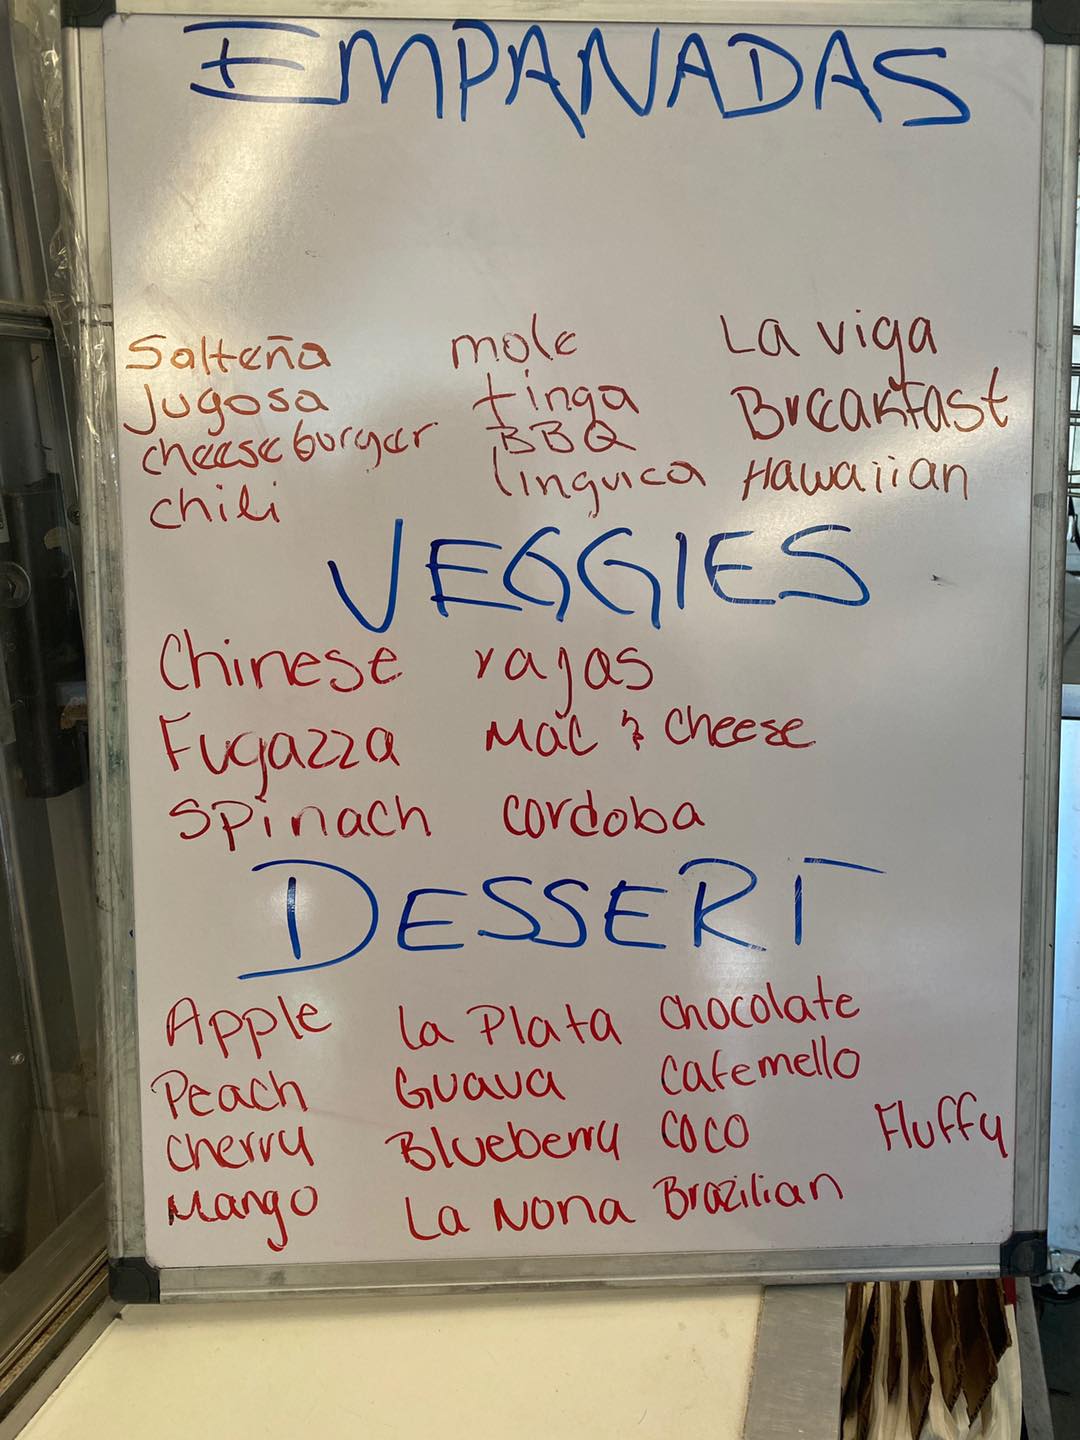 EMPANADAS
Salteña mole La viga
Jugosa tinga Breakfast
cheeseburger BBQ Hawaiian
chili linguica
VEGGIES
Chinese rajas
Fugazza Mac & Cheese
Spinach cordoba
DESSERT
Apple La Plata Chocolate
Peach Guava Cafemello
Cherry Blueberry COCO Fluffy
Mango La Nona Brazilian